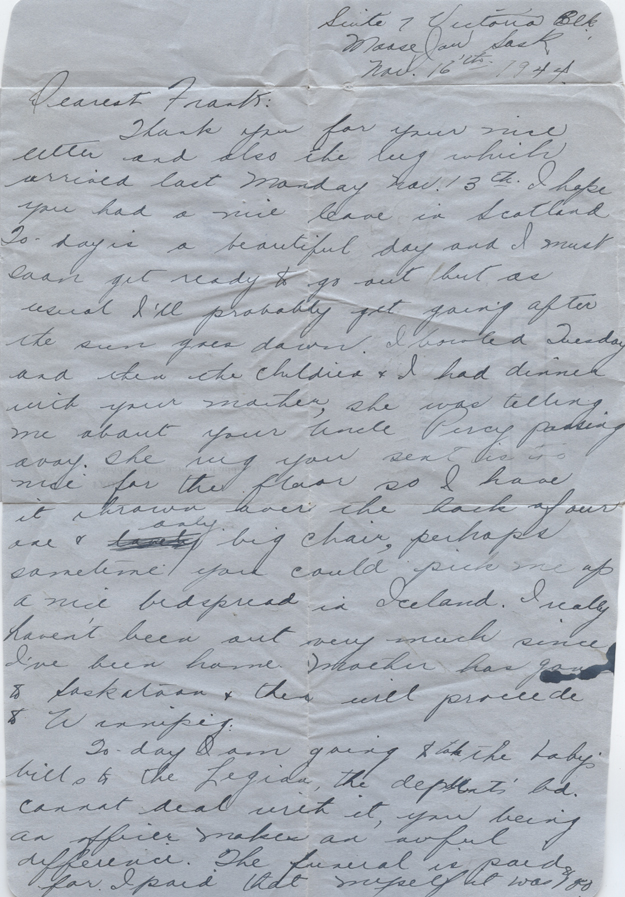 Suite 7 Victoria Blk.
Moose Jaw Sask.
Nov. 16th 1944
Dearest Frank:
Thank you for your nice
letter and also the rug which
arrived last Monday Nov. 13th. I hope
you had a nice leave in Scotland
To-day is a beautiful day and I must
soon get ready to go out but as
usual I'll probably get going after
the sun goes down. I bowled Tuesday
and then the children & I had dinner
with your mother, she was telling
me about your Uncle Percy passing
away. The rug you sent is to
nice for the floor so I have
it thrown over the back of our
one & only big chair, perhaps
sometime you could pick me up
a nice bedspread in Iceland. I really
haven't been out very much since
I've been home. Mother has gone
to Saskatoon & then will proceede
to Winnipeg.
To-day I am going to take the baby's
bills to the Legion, the bd.
cannot deal with it, you being
an officer makes an awful
difference. The funeral is paid
for. I paid that myself it was